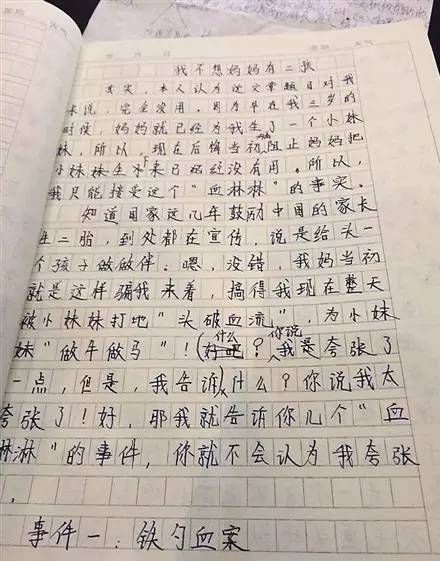 星期 天气
月 日 星期 天气
我不想妈妈有二胎
其实，本人认为这文章题目对我
来说，完全没用。因为早在我三岁的
时候，妈妈就已经为我生了一个小妹
妹，所以，现在后悔当初阻止妈妈把
小妹妹生下来已经没有用。所以，
我只能接受这个“血淋淋”的事实。
知道国家这几年鼓励中国的家长
生二胎，到处都在宣传，说是给头一
个孩子做做伴：嗯，没错，我妈当初
就是这样骗我来着，搞得我现在整天
被小妹妹打地“头破血流”，为小妹
妹“做牛做马”！什么？你说我是夸张了
一点，但是，我告诉什么？你说我太
夸张了！好，那我就告诉你几个“血
淋淋”的事件，你就不会认为我夸张
。
事件一：铁勺血案